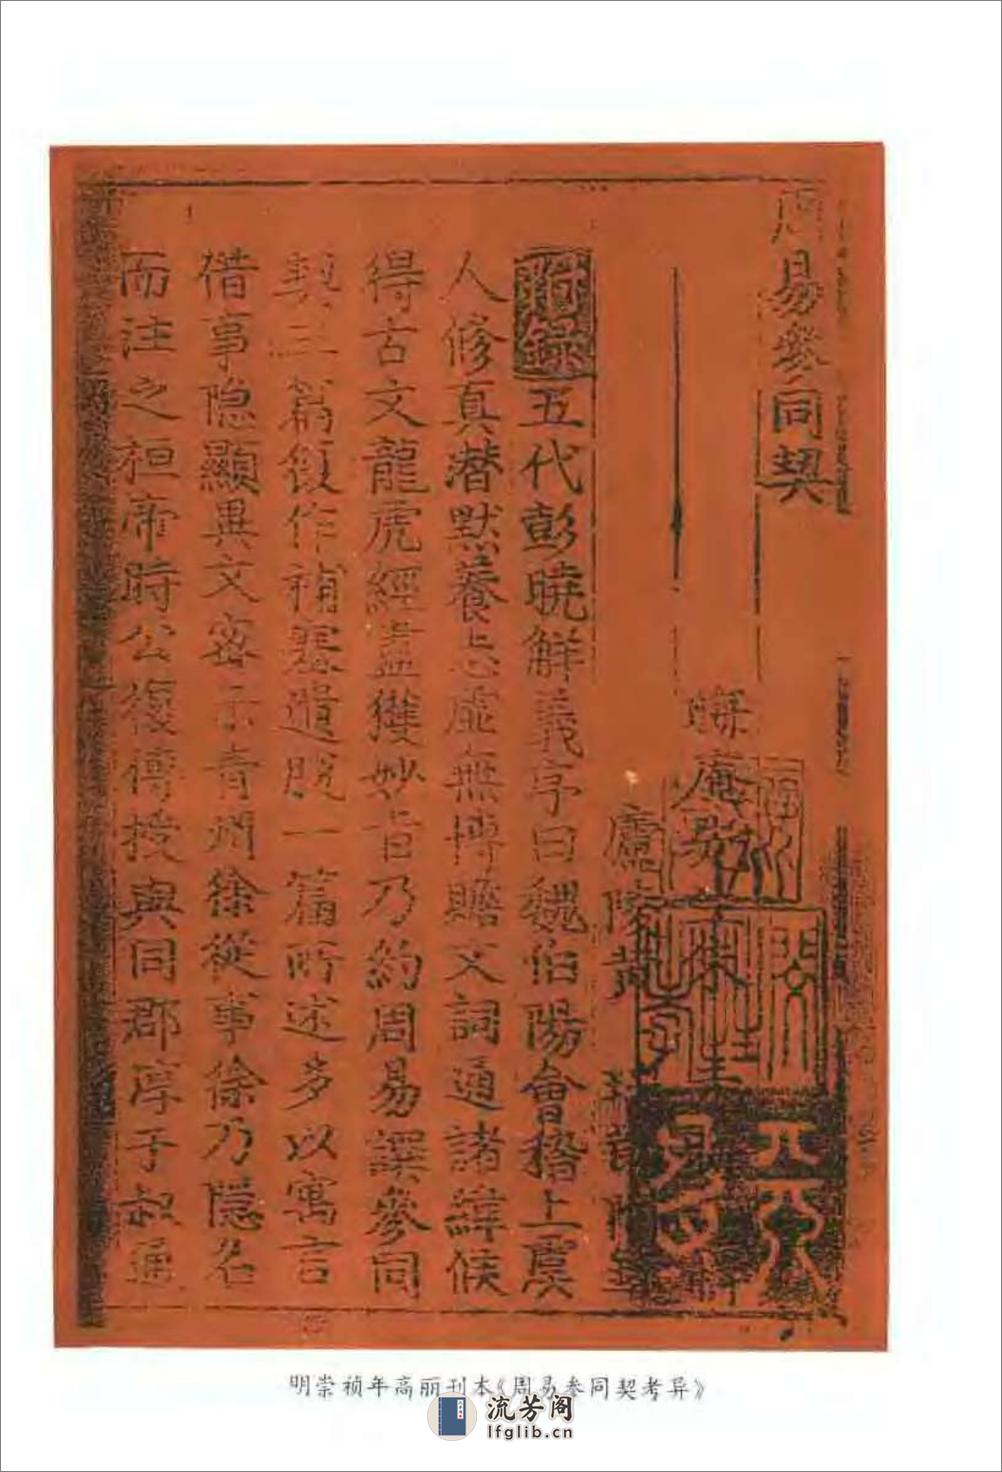 周易參同契
晦菴朱 註
廬陵黃 瑞節 附 
附錄五代彭曉解義序曰魏伯陽會稽上虞
人修真潛默養志虛無博贍文詞通諸緯候
得古文龍虎經盡獲妙旨乃約周易譔參同
契三篇復作補塞遺脫一篇所述多以寓言
借事隱顯異文密示青州徐從事徐乃隱名
而注之桓帝時公復傳授與同郡淳于叔通
明崇祯年高丽刊本《周易参同契考异》
流芳阁
lfglib.cn